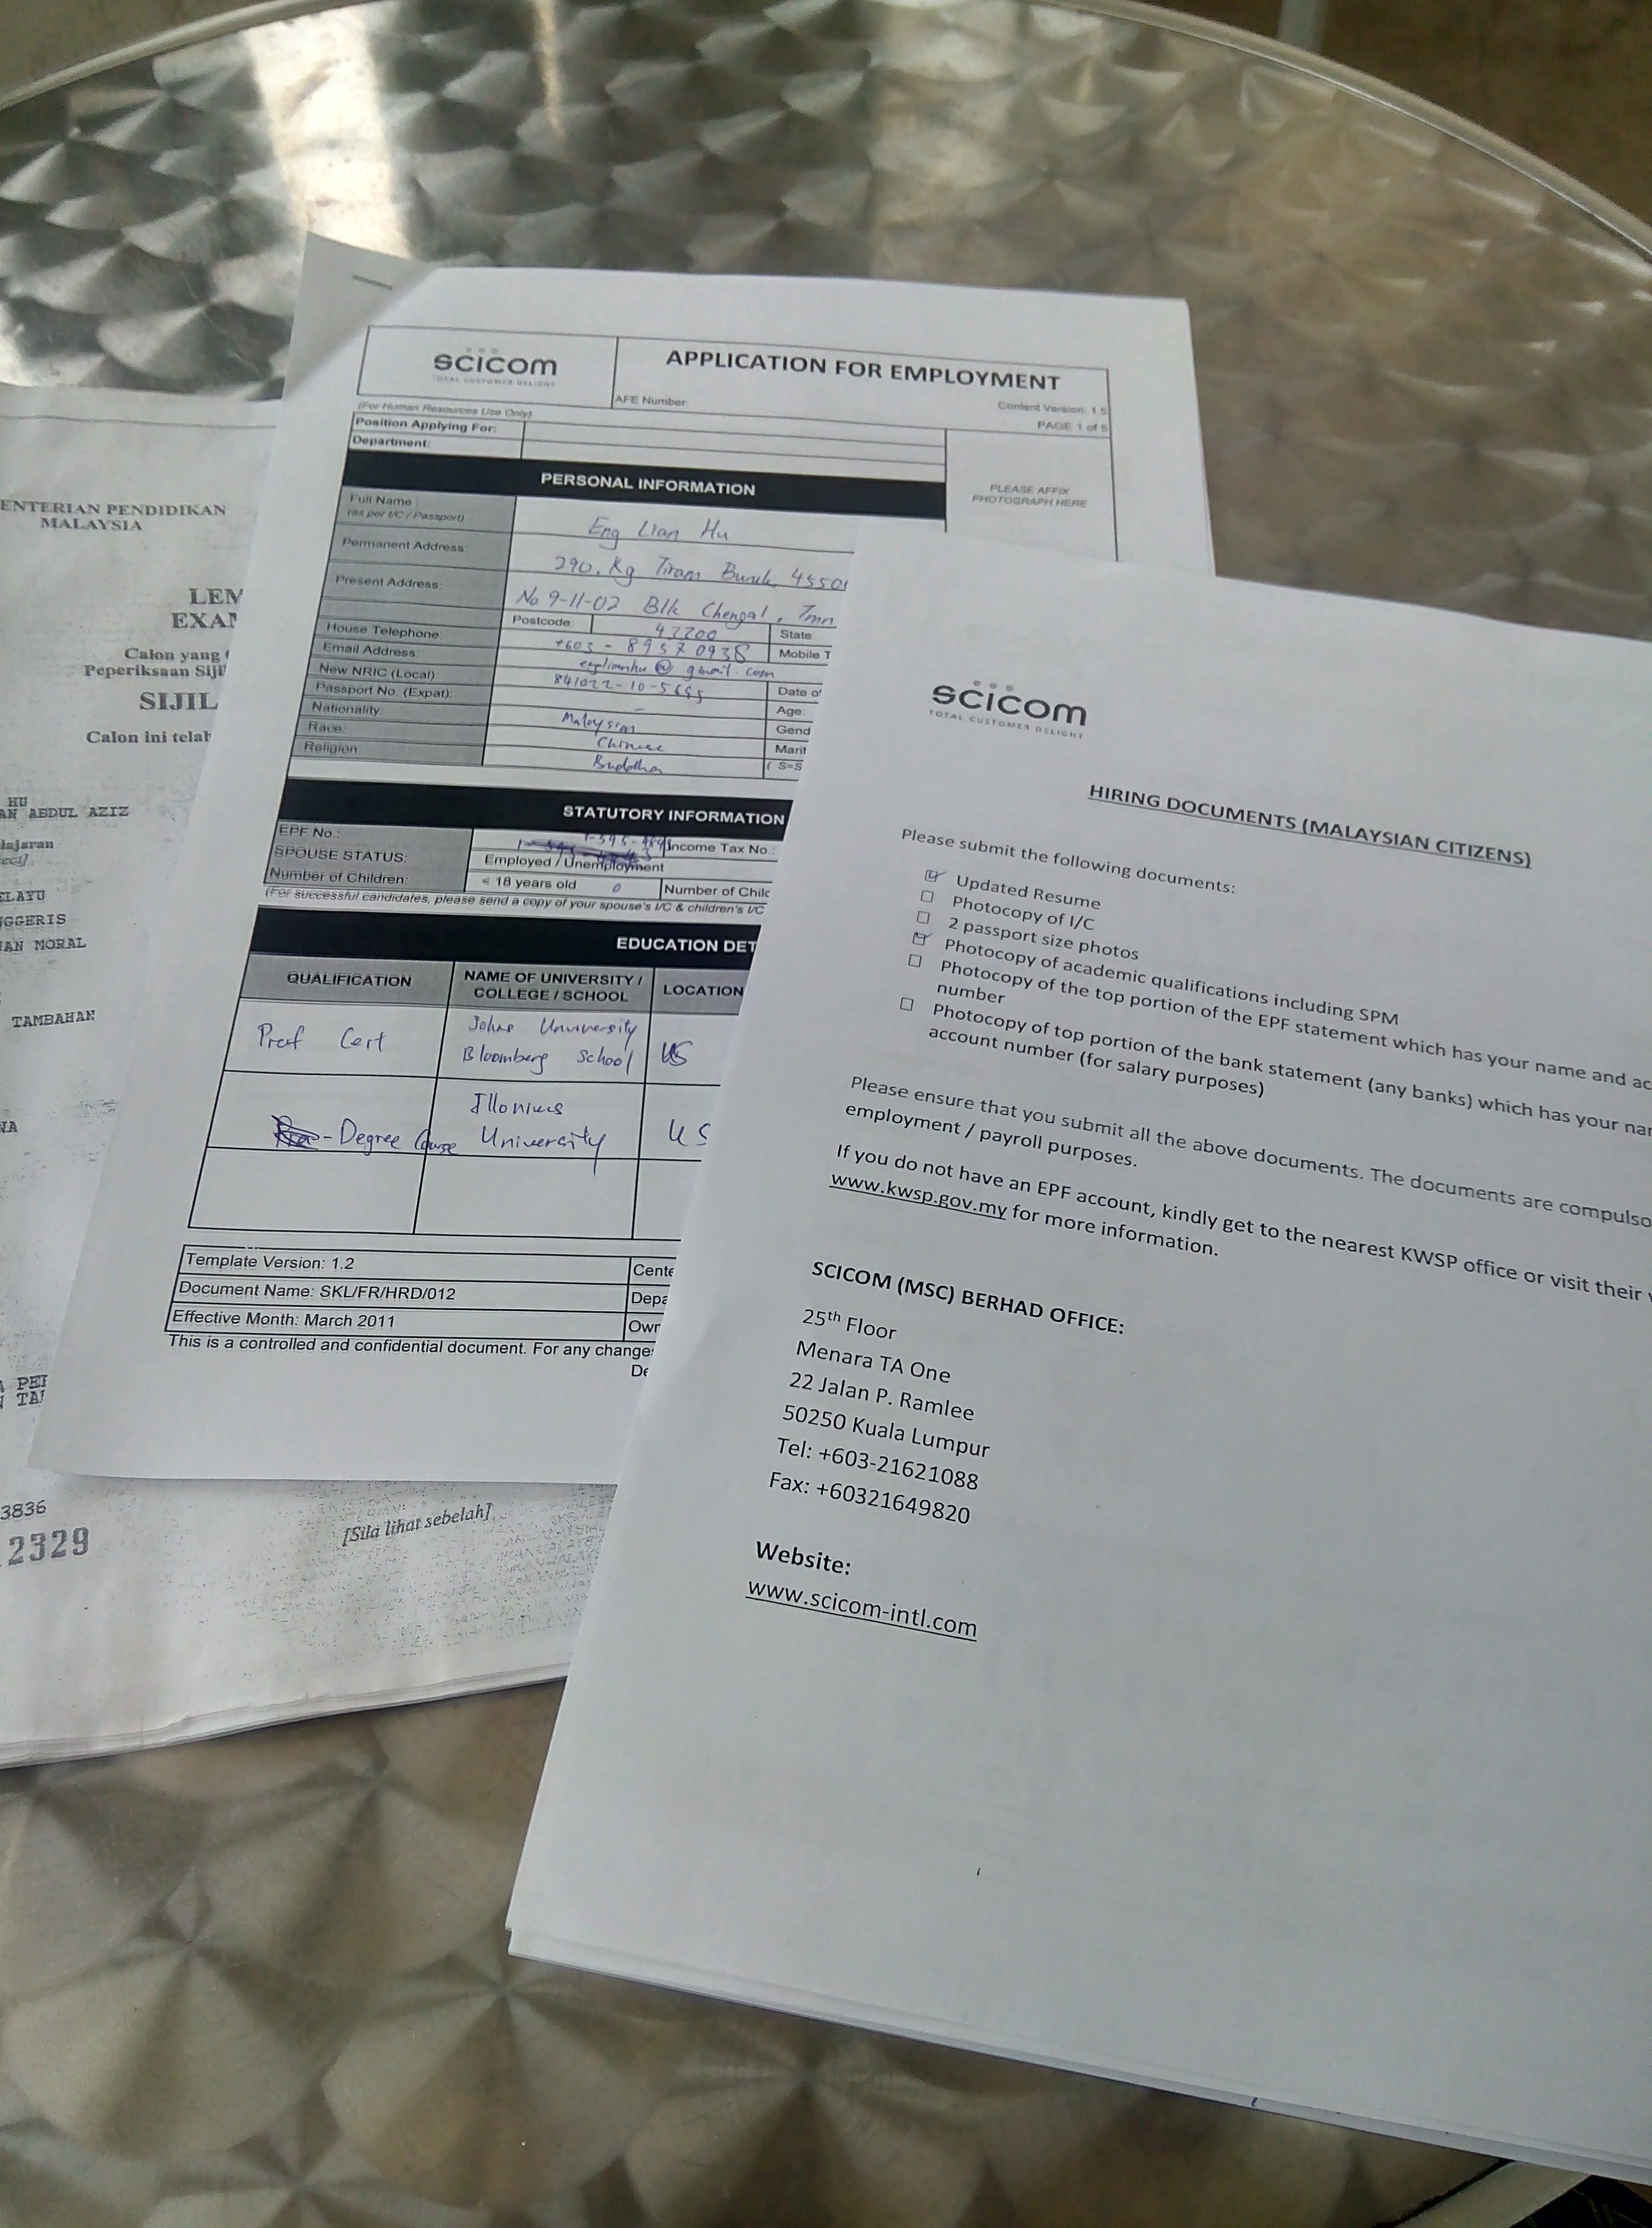 ENTERIAN PENDIDIKAN
MALAYSIA
LEM
EXAM
Calon yang
Peperiksaan Sijil
SIJIL
Calon ini telah
HU
AN ABDUL AZIZ
lajaran
ELAYU
GGERIS
AN MORAL
TAMBAHAN
NA
A PEI
TA
3836
2329
[Sila lihat sebelah]
scicom
TOTAL CUSTOMER DELIGHT
APPLICATION FOR EMPLOYMENT
AFE Number:
Content Version: 1.9
PAGE 1 of 5
(For Human Resources Use Only)
Position Applying For:
Department:
PLEASE AFFIX
PHOTOGRAPH HERE
PERSONAL INFORMATION
Full Name :
(as per I/C / Passport)
Eng Lian Hu
Permanent Address:
290, Kg Tiram Buruk, 45501
Present Address:
No 9-11-02 Blk Chengal, Tmn
Postcode:
43200
State
House Telephone:
+603 - 89570938
Mobile T
Email Address:
englianhu@gmail.com
New NRIC (Local)
841022-10-5695
Date of
Passport No. (Expat):
-
Age:
Nationality:
Malaysian
Gend
Race:
Chinese
Marit
Religion:
Buddha
( S=S
STATUTORY INFORMATION
EPF No.:
Income Tax No.:
SPOUSE STATUS:
Employed / Unemployment
Number of Children:
< 18 years old
0
Number of Childr
(For successful candidates, please send a copy of your spouse's I/C & children's I/C
EDUCATION DET
QUALIFICATION
NAME OF UNIVERSITY /
COLLEGE / SCHOOL
LOCATION
Prof Cert
Johns University
Bloomberg School
US
- Degree Course
Illonius
University
US
Template Version: 1.2
Cente
Document Name: SKL/FR/HRD/012
Depa
Effective Month: March 2011
Own
This is a controlled and confidential document. For any change
De
scicom
TOTAL CUSTOMER DELIGHT
HIRING DOCUMENTS (MALAYSIAN CITIZENS)
Please submit the following documents:
Updated Resume
Photocopy of I/C
2 passport size photos
Photocopy of academic qualifications including SPM
Photocopy of the top portion of the EPF statement which has your name and ac
number
Photocopy of top portion of the bank statement (any banks) which has your nam
account number (for salary purposes)
Please ensure that you submit all the above documents. The documents are compulso
employment / payroll purposes.
If you do not have an EPF account, kindly get to the nearest KWSP office or visit their w
www.kwsp.gov.my for more information.
SCICOM (MSC) BERHAD OFFICE:
25th Floor
Menara TA One
22 Jalan P. Ramlee
50250 Kuala Lumpur
Tel: +603-21621088
Fax: +60321649820
Website:
www.scicom-intl.com